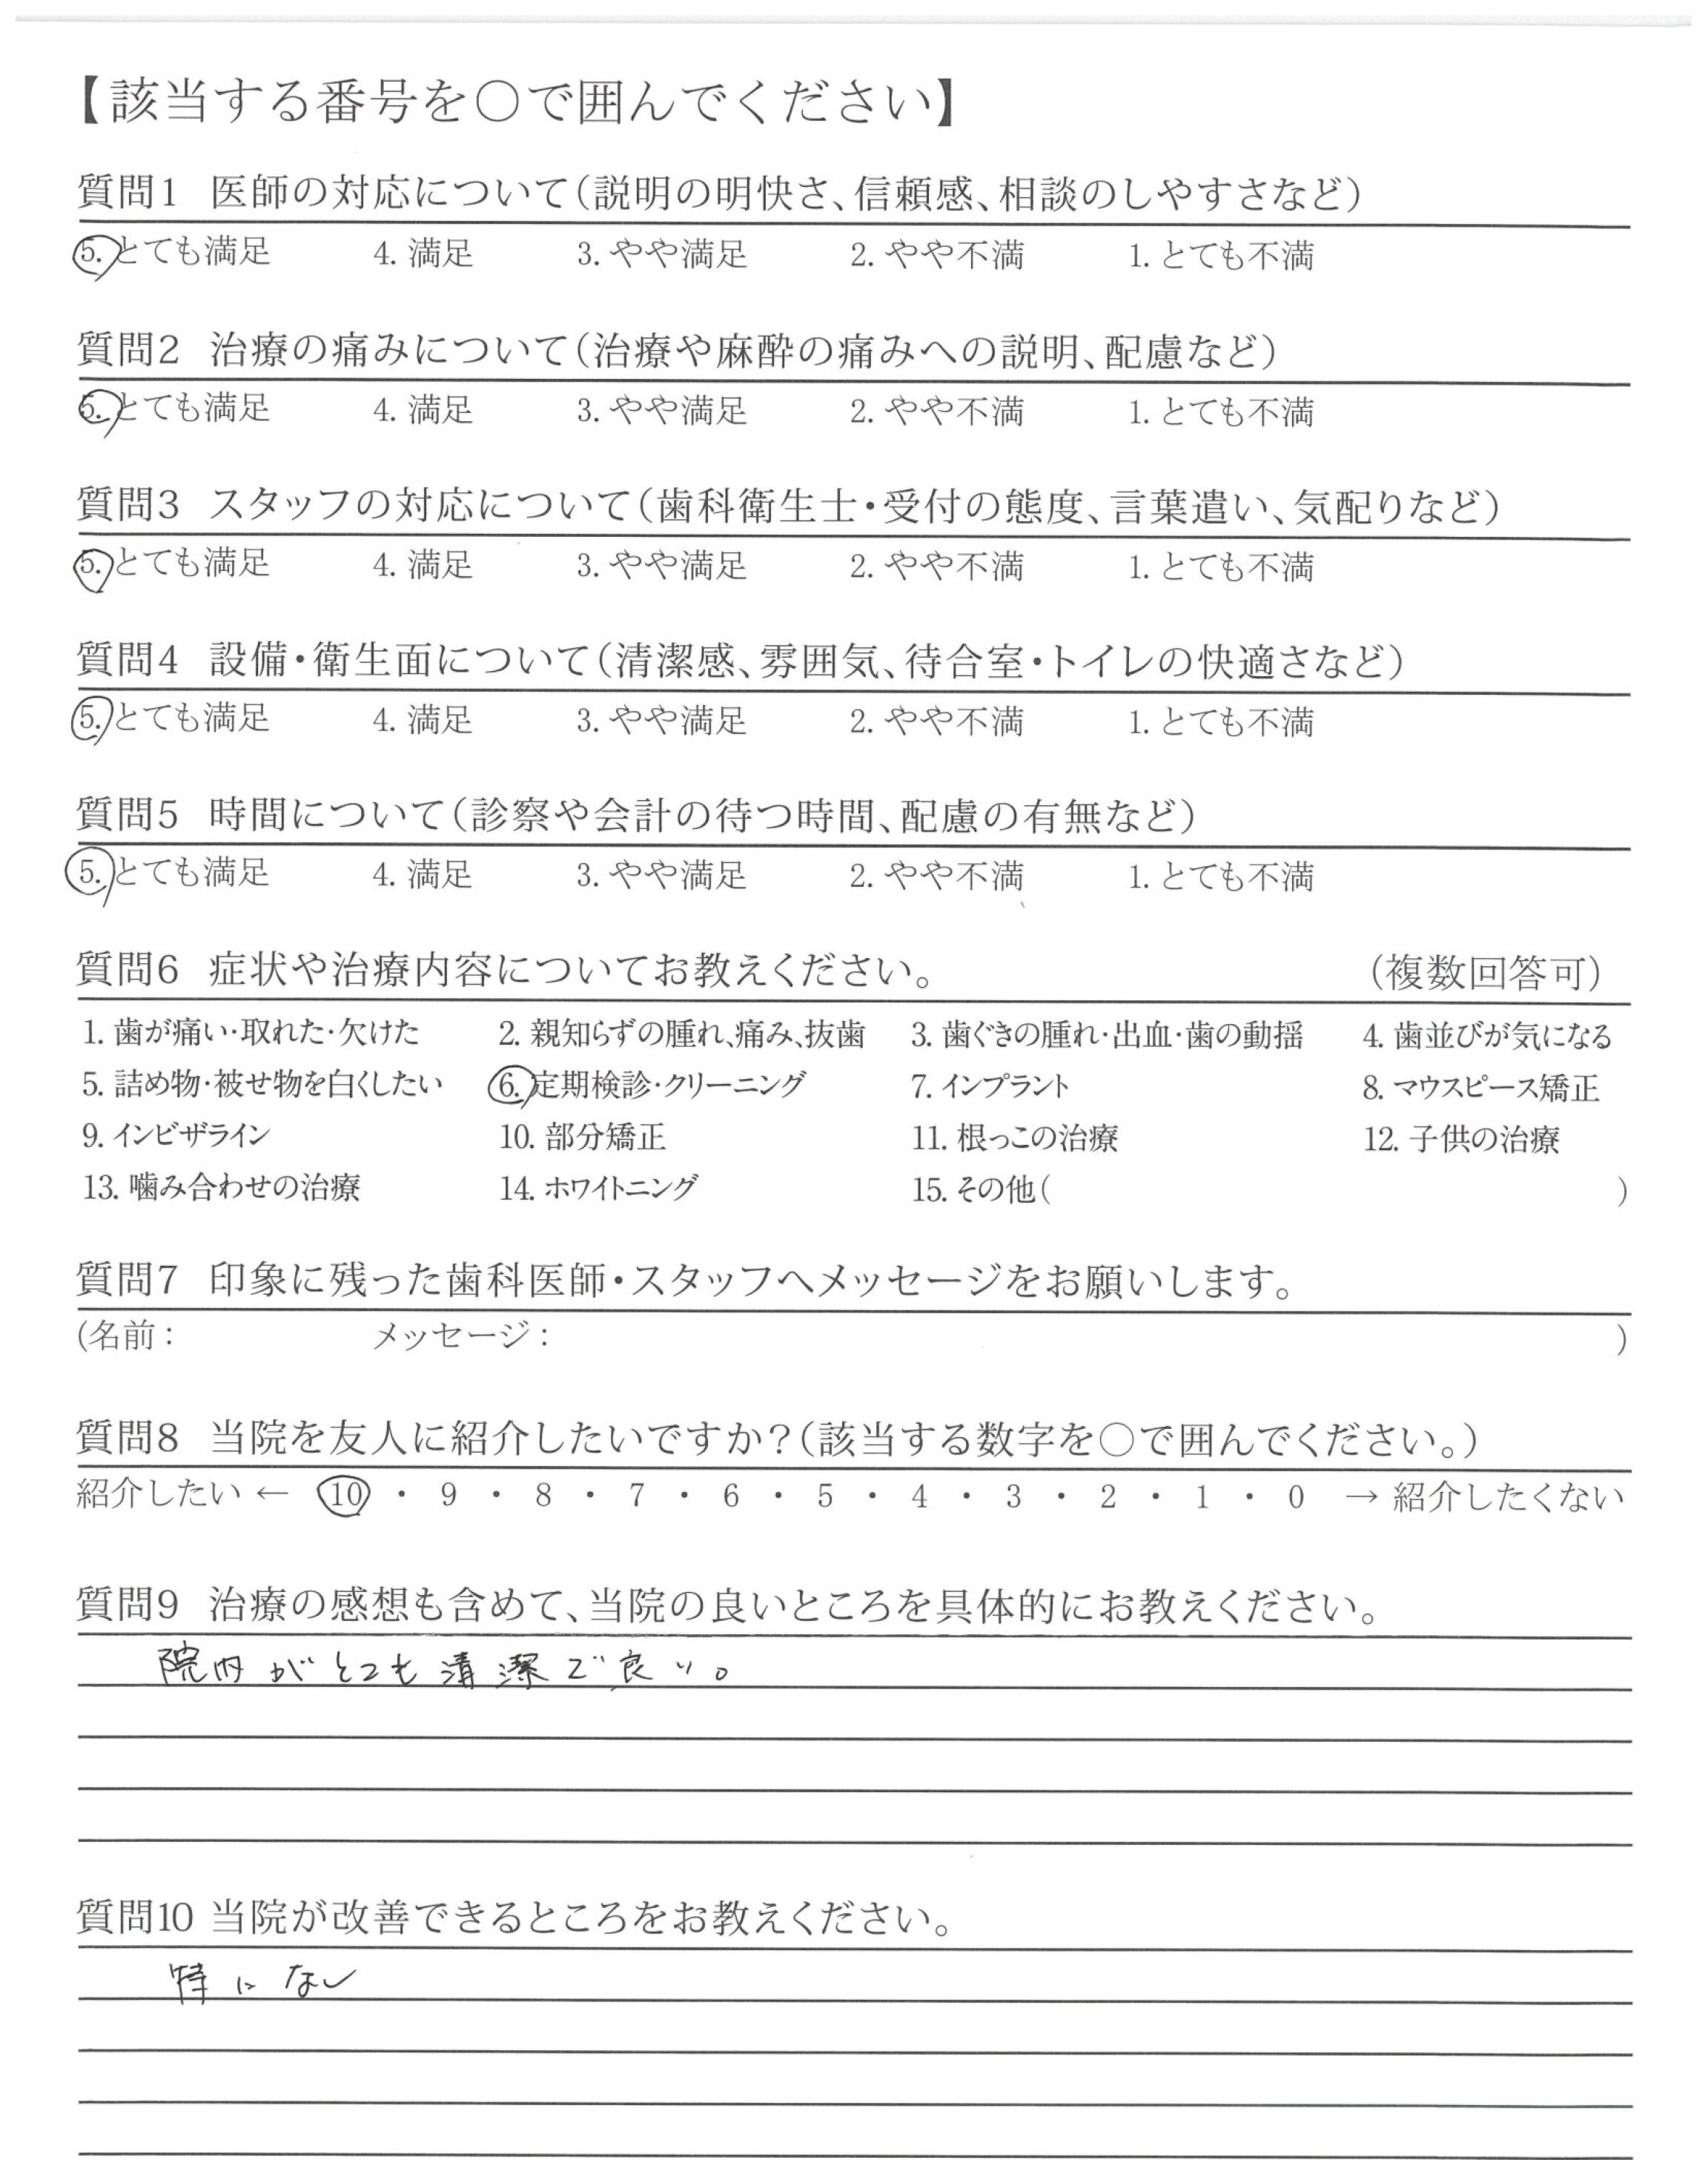 【該当する番号を○で囲んでください】
質問1 医師の対応について(説明の明快さ、信頼感、相談のしやすさなど)
5. とても満足 4. 満足 3. やや満足 2. やや不満 1. とても不満
質問2 治療の痛みについて(治療や麻酔の痛みへの説明、配慮など)
5. とても満足 4. 満足 3. やや満足 2. やや不満 1. とても不満
質問3 スタッフの対応について(歯科衛生士・受付の態度、言葉遣い、気配りなど)
5. とても満足 4. 満足 3. やや満足 2. やや不満 1. とても不満
質問4 設備・衛生面について(清潔感、雰囲気、待合室・トイレの快適さなど)
5. とても満足 4. 満足 3. やや満足 2. やや不満 1. とても不満
質問5 時間について(診察や会計の待つ時間、配慮の有無など)
5. とても満足 4. 満足 3. やや満足 2. やや不満 1. とても不満
質問6 症状や治療内容についてお教えください。 (複数回答可)
1. 歯が痛い・取れた・欠けた 2. 親知らずの腫れ、痛み、抜歯 3. 歯ぐきの腫れ・出血・歯の動揺 4. 歯並びが気になる
5. 詰め物・被せ物を白くしたい 6. 定期検診・クリーニング 7. インプラント 8. マウスピース矯正
9. インビザライン 10. 部分矯正 11. 根っこの治療 12. 子供の治療
13. 噛み合わせの治療 14. ホワイトニング 15. その他( )
質問7 印象に残った歯科医師・スタッフへメッセージをお願いします。
(名前: メッセージ: )
質問8 当院を友人に紹介したいですか?(該当する数字を○で囲んでください。)
紹介したい ← 10 ・ 9 ・ 8 ・ 7 ・ 6 ・ 5 ・ 4 ・ 3 ・ 2 ・ 1 ・ 0 → 紹介したくない
質問9 治療の感想も含めて、当院の良いところを具体的にお教えください。
院内がとても清潔で良い。
質問10 当院が改善できるところをお教えください。
特になし